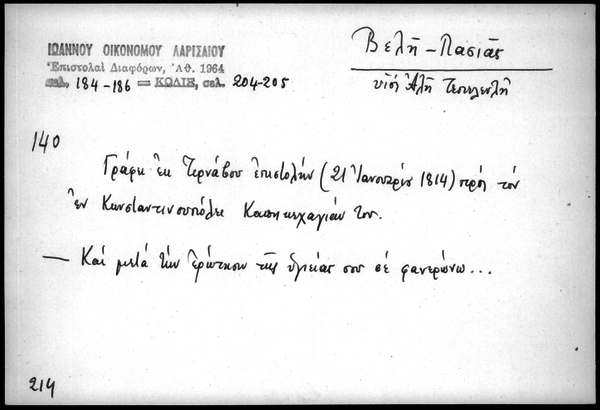 ΙΩΑΝΝΟΥ ΟΙΚΟΝΟΜΟΥ ΛΑΡΙΣΑΙΟΥ
Ἐπιστολαὶ Διαφόρων, Ἀθ. 1964
σελ. 184-186 — ΚΩΔΙΞ, σελ. 204-205
Βελῆ-Πασιᾶς
υἱὸς Ἀλῆ Τεπελενλῆ
140
Γράφει ἐκ Τερνάβου ἐπιστολὴν (21 Ἰανουαρίου 1814) πρὸς τὸν
ἐν Κωνσταντινουπόλει Καπικεχαγιάν του.
— Καὶ μετὰ τὴν ἐρώτησιν τῆς ὑγιείας σου σὲ φανερώνω...
214